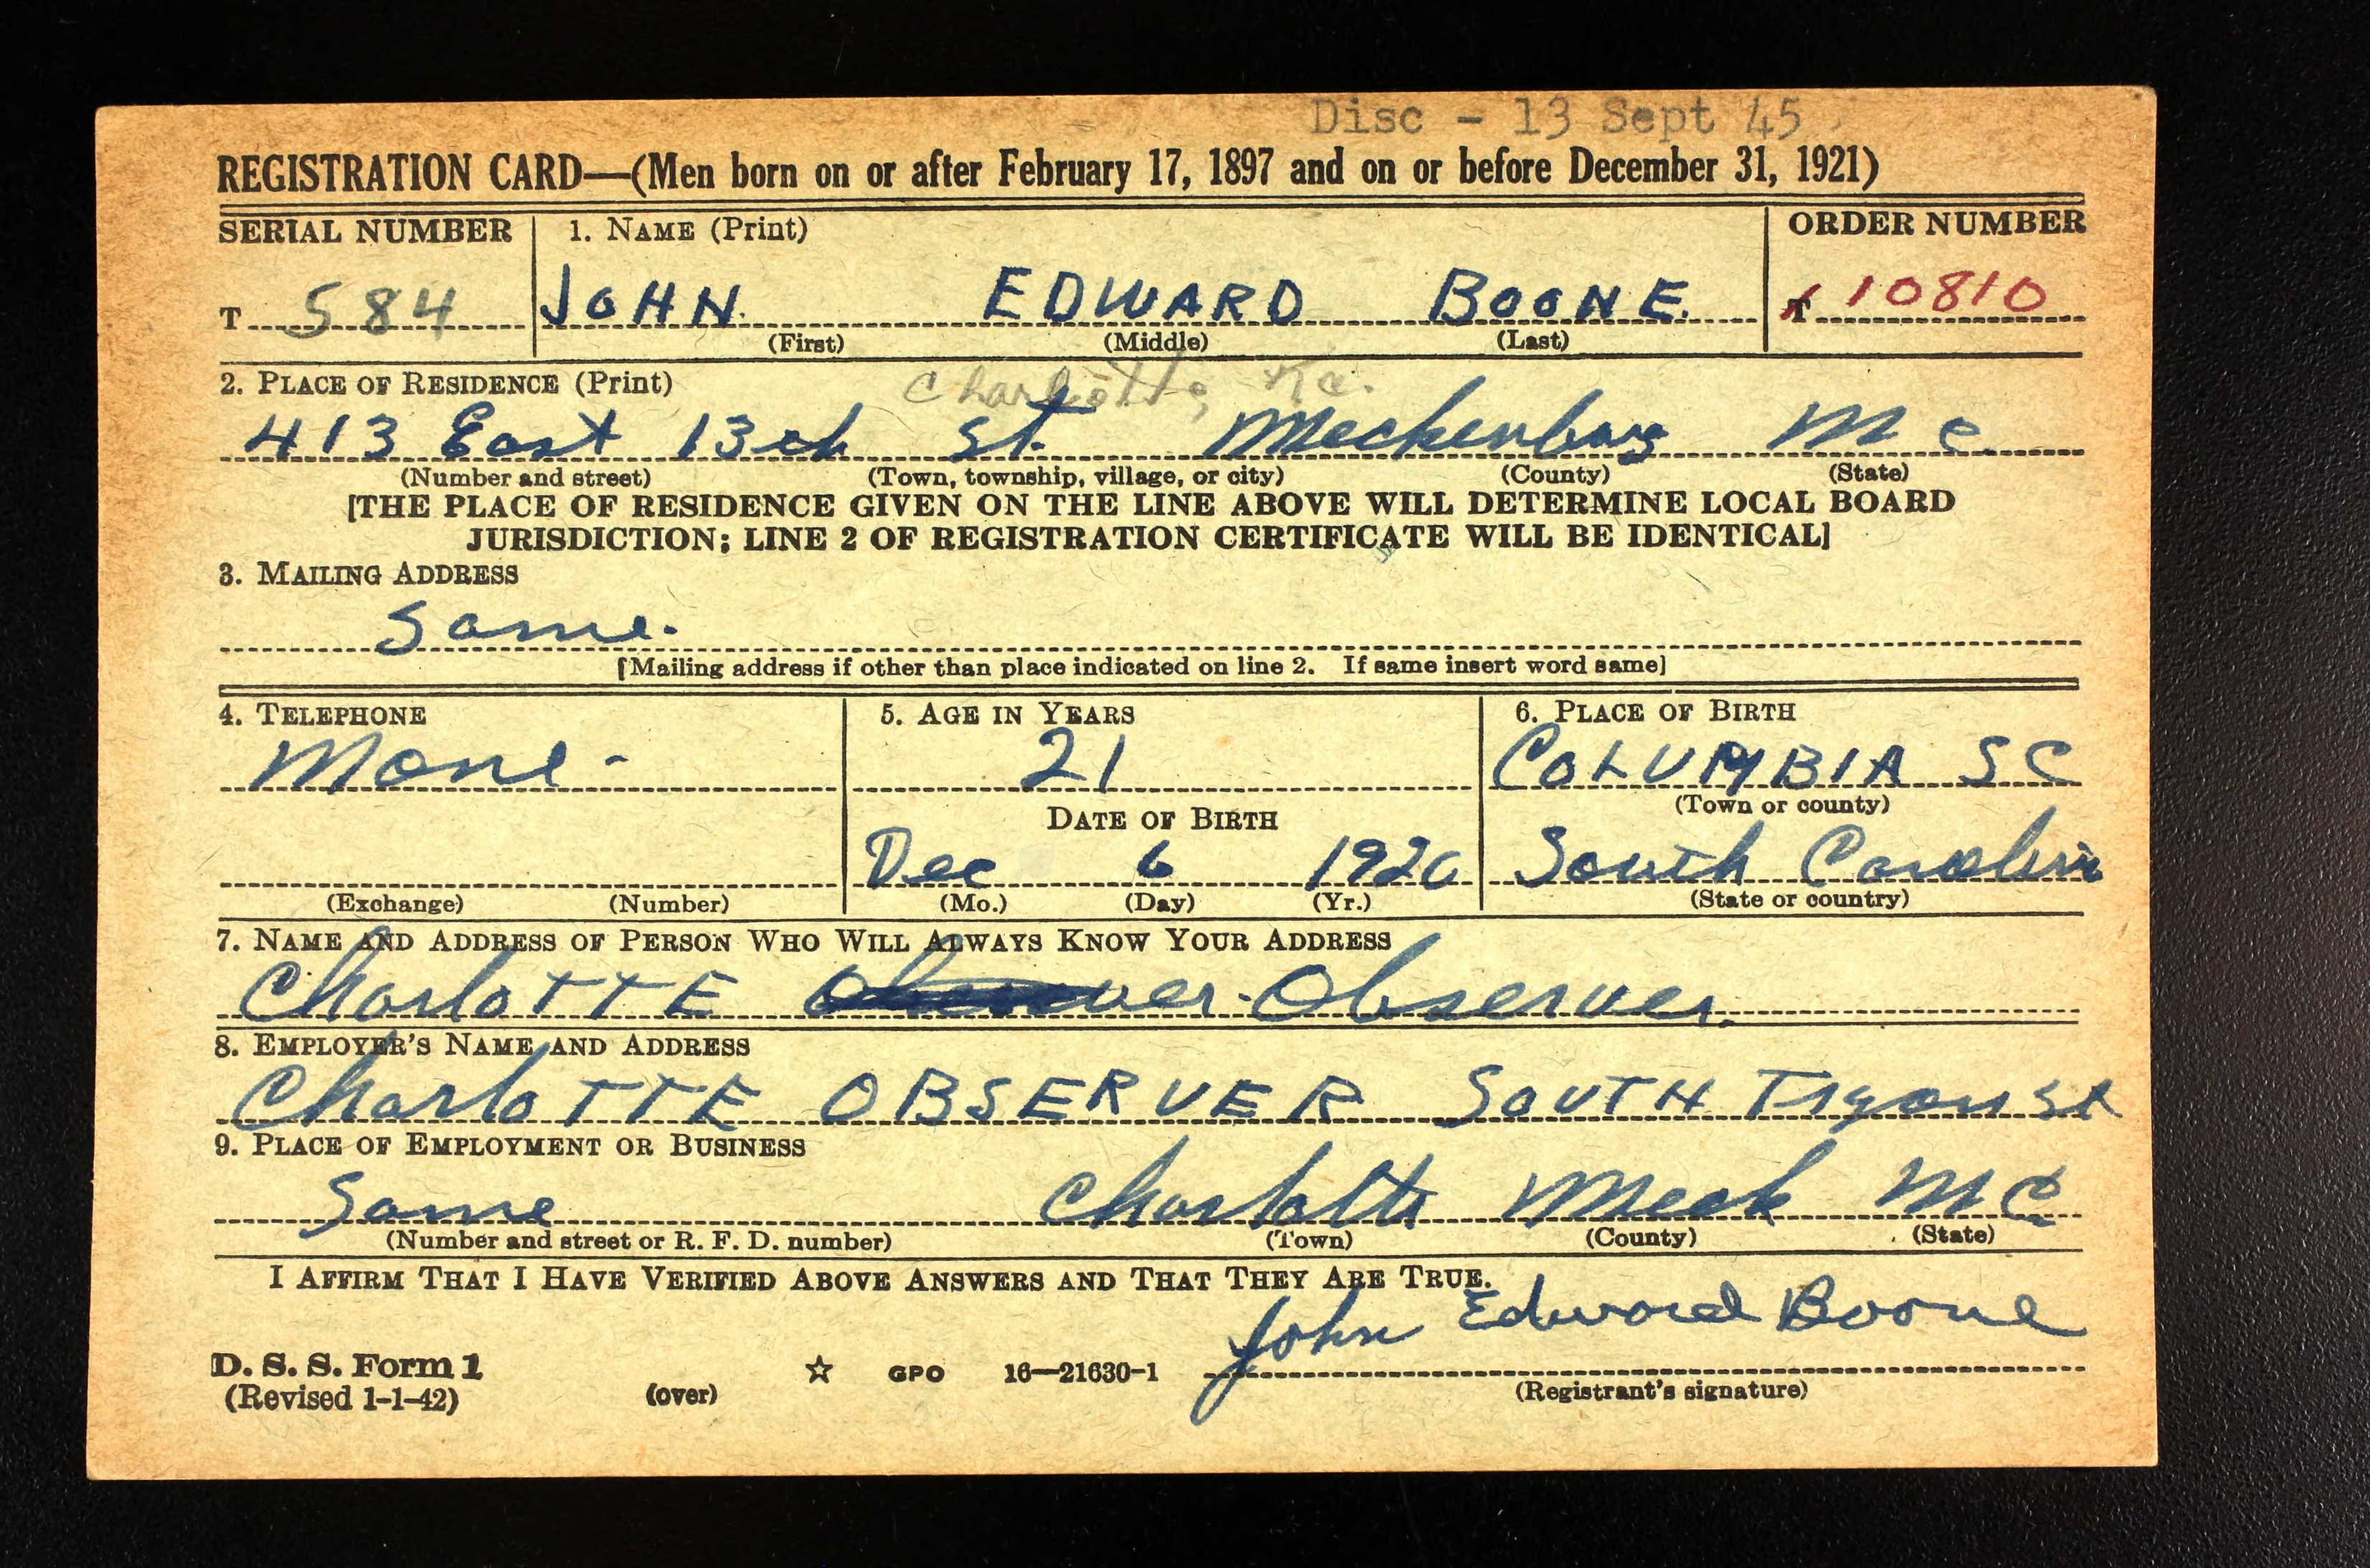 Disc - 13 Sept 45
REGISTRATION CARD—(Men born on or after February 17, 1897 and on or before December 31, 1921)
SERIAL NUMBER 1. NAME (Print) ORDER NUMBER
T 584 JOHN EDWARD BOONE. T 10810
(First) (Middle) (Last)
2. PLACE OF RESIDENCE (Print) Charlotte, N.C.
413 East 13th St. Meckenburg N C.
(Number and street) (Town, township, village, or city) (County) (State)
[THE PLACE OF RESIDENCE GIVEN ON THE LINE ABOVE WILL DETERMINE LOCAL BOARD
JURISDICTION; LINE 2 OF REGISTRATION CERTIFICATE WILL BE IDENTICAL]
3. MAILING ADDRESS
Same.
[Mailing address if other than place indicated on line 2. If same insert word same]
4. TELEPHONE 5. AGE IN YEARS 6. PLACE OF BIRTH
None - 21 COLUMBIA SC
DATE OF BIRTH (Town or county)
Dec 6 1920 South Carolina
(Exchange) (Number) (Mo.) (Day) (Yr.) (State or country)
7. NAME AND ADDRESS OF PERSON WHO WILL ALWAYS KNOW YOUR ADDRESS
CharloTTE Observer.
8. EMPLOYER'S NAME AND ADDRESS
CharloTTE OBSERVER SOUTH Tryon St
9. PLACE OF EMPLOYMENT OR BUSINESS
Same Charlotte Meck N C.
(Number and street or R. F. D. number) (Town) (County) (State)
I AFFIRM THAT I HAVE VERIFIED ABOVE ANSWERS AND THAT THEY ARE TRUE.
John Edward Boone
D. S. S. Form 1
(Revised 1-1-42) (over) ☆ GPO 16—21630-1 (Registrant's signature)